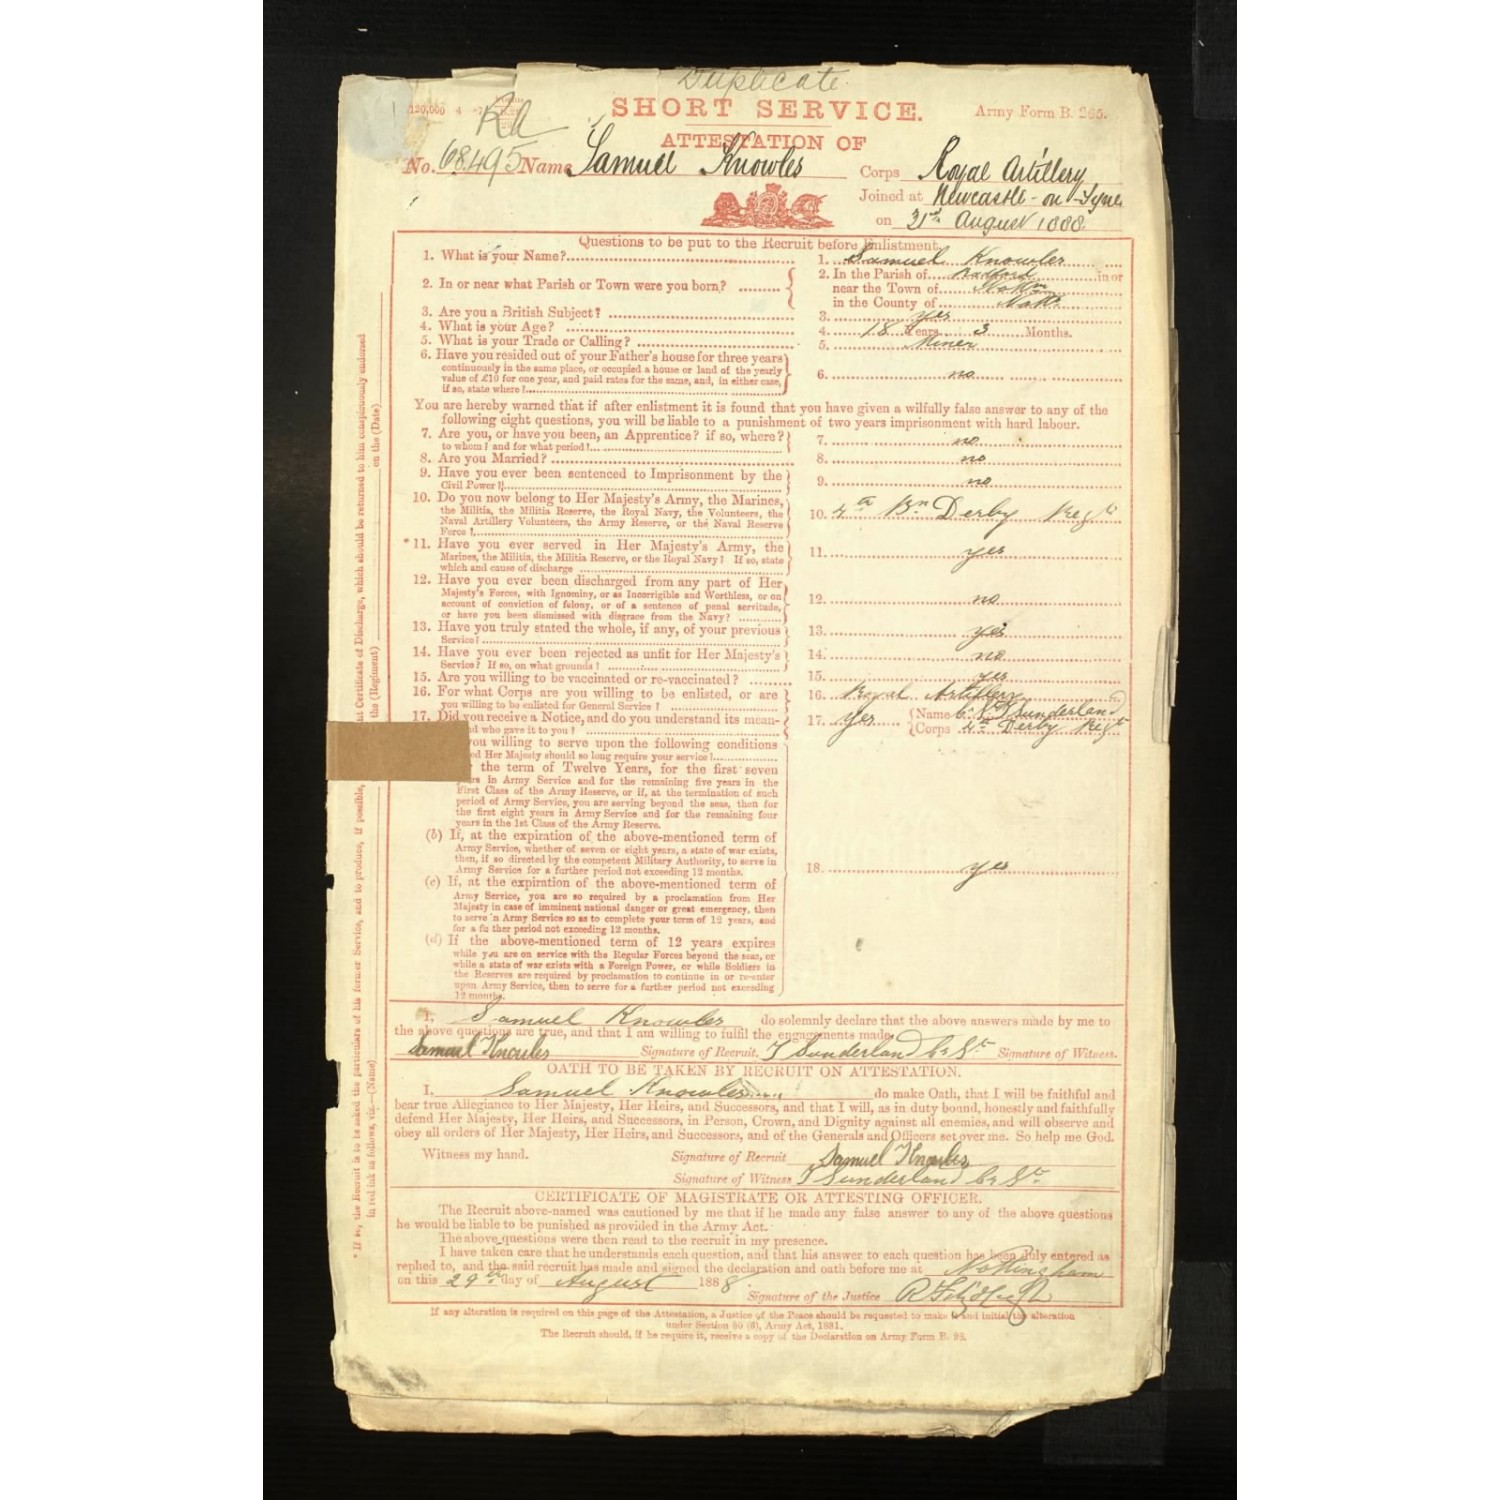 Duplicate
120,000 4
SHORT SERVICE.
Army Form B. 265.
RA
ATTESTATION OF
No. 68495 Name Samuel Knowles Corps Royal Artillery
Joined at Newcastle-on-Tyne
on 31st August 1888
Questions to be put to the Recruit before Enlistment.
1. What is your Name? 1. Samuel Knowles
2. In or near what Parish or Town were you born? 2. In the Parish of Radford in or
near the Town of Nottm
in the County of Notts
3. Are you a British Subject? 3. yes
4. What is your Age? 4. 18 Years 3 Months.
5. What is your Trade or Calling? 5. Miner
6. Have you resided out of your Father's house for three years
continuously in the same place, or occupied a house or land of the yearly
value of £10 for one year, and paid rates for the same, and, in either case,
if so, state where? 6. no
You are hereby warned that if after enlistment it is found that you have given a wilfully false answer to any of the
following eight questions, you will be liable to a punishment of two years imprisonment with hard labour.
7. Are you, or have you been, an Apprentice? if so, where?
to whom? and for what period? 7. no
8. Are you Married? 8. no
9. Have you ever been sentenced to Imprisonment by the
Civil Power? 9. no
10. Do you now belong to Her Majesty's Army, the Marines,
the Militia, the Militia Reserve, the Royal Navy, the Volunteers, the
Naval Artillery Volunteers, the Army Reserve, or the Naval Reserve
Force? 10. 4th Bn Derby Regt
*11. Have you ever served in Her Majesty's Army, the
Marines, the Militia, the Militia Reserve, or the Royal Navy? If so, state
which and cause of discharge 11. yes
12. Have you ever been discharged from any part of Her
Majesty's Forces, with Ignominy, or as Incorrigible and Worthless, or on
account of conviction of felony, or of a sentence of penal servitude,
or have you been dismissed with disgrace from the Navy? 12. no
13. Have you truly stated the whole, if any, of your previous
Service? 13. yes
14. Have you ever been rejected as unfit for Her Majesty's
Service? If so, on what grounds? 14. no
15. Are you willing to be vaccinated or re-vaccinated? 15. yes
16. For what Corps are you willing to be enlisted, or are
you willing to be enlisted for General Service? 16. Royal Artillery
17. Did you receive a Notice, and do you understand its mean-
nd who gave it to you? 17. yes Name Cr St Sunderland
Corps 4th Derby Regt
you willing to serve upon the following conditions
ed Her Majesty should so long require your service?
the term of Twelve Years, for the first seven
years in Army Service and for the remaining five years in the
First Class of the Army Reserve, or if, at the termination of such
period of Army Service, you are serving beyond the seas, then for
the first eight years in Army Service and for the remaining four
years in the 1st Class of the Army Reserve.
(b) If, at the expiration of the above-mentioned term of
Army Service, whether of seven or eight years, a state of war exists,
then, if so directed by the competent Military Authority, to serve in
Army Service for a further period not exceeding 12 months.
18. yes
(c) If, at the expiration of the above-mentioned term of
Army Service, you are so required by a proclamation from Her
Majesty in case of imminent national danger or great emergency, then
to serve in Army Service so as to complete your term of 12 years, and
for a further period not exceeding 12 months.
(d) If the above-mentioned term of 12 years expires
while you are on service with the Regular Forces beyond the seas, or
while a state of war exists with a Foreign Power, or while Soldiers in
the Reserves are required by proclamation to continue in or re-enter
upon Army Service, then to serve for a further period not exceeding
12 months.
I, Samuel Knowles do solemnly declare that the above answers made by me to
the above questions are true, and that I am willing to fulfil the engagements made.
Samuel Knowles Signature of Recruit. T Sunderland Cr St Signature of Witness.
OATH TO BE TAKEN BY RECRUIT ON ATTESTATION.
I, Samuel Knowles do make Oath, that I will be faithful and
bear true Allegiance to Her Majesty, Her Heirs, and Successors, and that I will, as in duty bound, honestly and faithfully
defend Her Majesty, Her Heirs, and Successors, in Person, Crown, and Dignity against all enemies, and will observe and
obey all orders of Her Majesty, Her Heirs, and Successors, and of the Generals and Officers set over me. So help me God.
Witness my hand. Signature of Recruit Samuel Knowles
Signature of Witness T Sunderland Cr St
CERTIFICATE OF MAGISTRATE OR ATTESTING OFFICER.
The Recruit above-named was cautioned by me that if he made any false answer to any of the above questions
he would be liable to be punished as provided in the Army Act.
The above questions were then read to the recruit in my presence.
I have taken care that he understands each question, and that his answer to each question has been duly entered as
replied to, and the said recruit has made and signed the declaration and oath before me at Nottingham
on this 29th day of August 1888.
Signature of the Justice
If any alteration is required on this page of the Attestation, a Justice of the Peace should be requested to make it and initial the alteration
under Section 80 (6), Army Act, 1881.
The Recruit should, if he require it, receive a copy of the Declaration on Army Form B. 98.
* If so, the Recruit is to be asked the particulars of his former Service, and to produce, if possible, Certificate of Discharge, which should be returned to him conspicuously endorsed
in red ink as follows, viz.—(Name) the (Regiment) on the (Date)